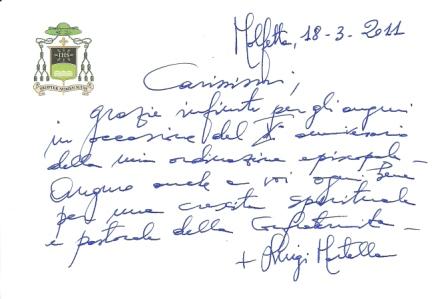 Molfetta, 18-3-2011
IHS
Carissimi,
grazie infinite per gli auguri
in occasione del X° anniversario
della mia ordinazione episcopale -
Auguro anche a voi ogni bene
per una crescita spirituale
e pastorale della Confraternita -
+ Luigi Martella